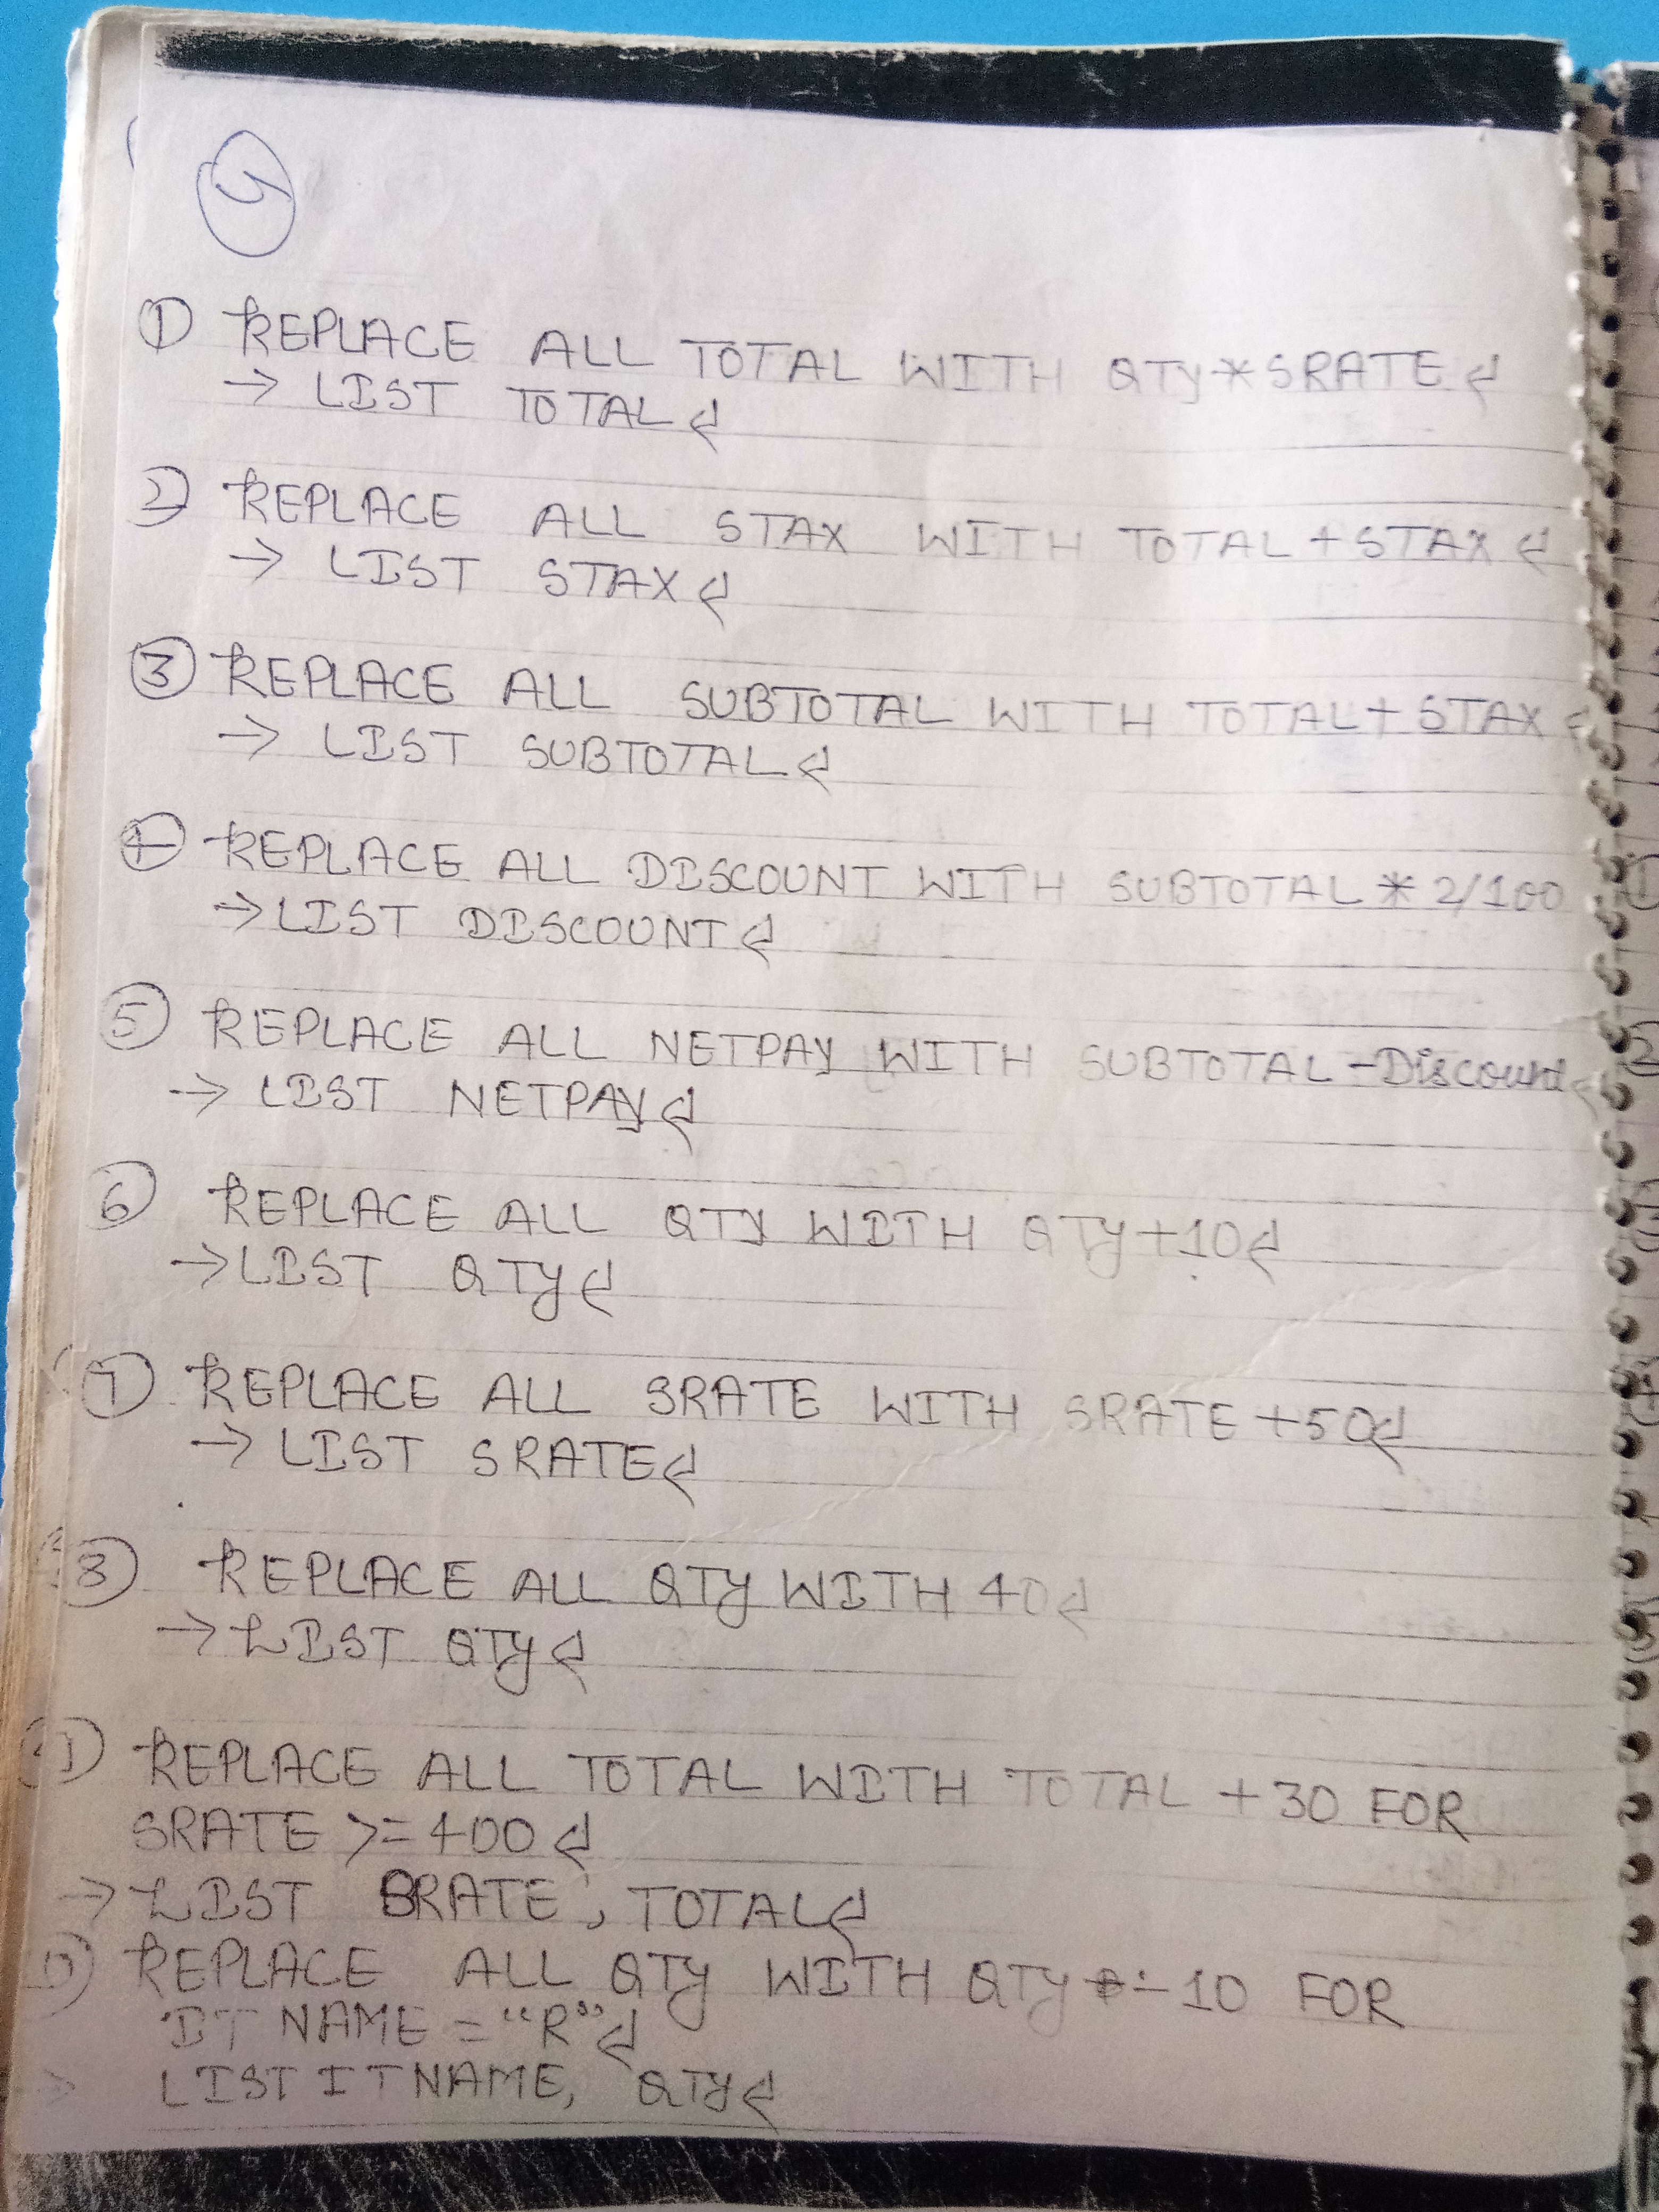 5
① REPLACE ALL TOTAL WITH QTY*SRATE↲
→ LIST TOTAL↲
② REPLACE ALL STAX WITH TOTAL+STAX↲
→ LIST STAX↲
③ REPLACE ALL SUBTOTAL WITH TOTAL+STAX↲
→ LIST SUBTOTAL↲
④ REPLACE ALL DISCOUNT WITH SUBTOTAL*2/100
→ LIST DISCOUNT↲
⑤ REPLACE ALL NETPAY WITH SUBTOTAL-Discount↲
→ LIST NETPAY↲
⑥ REPLACE ALL QTY WITH QTY+10↲
→ LIST QTY↲
⑦ REPLACE ALL SRATE WITH SRATE+50↲
→ LIST SRATE↲
⑧ REPLACE ALL QTY WITH 40↲
→ LIST QTY↲
⑨ REPLACE ALL TOTAL WITH TOTAL +30 FOR
SRATE >=400↲
→ LIST SRATE, TOTAL↲
⑩ REPLACE ALL QTY WITH QTY -10 FOR
ITNAME = "R"↲
LIST ITNAME, QTY↲